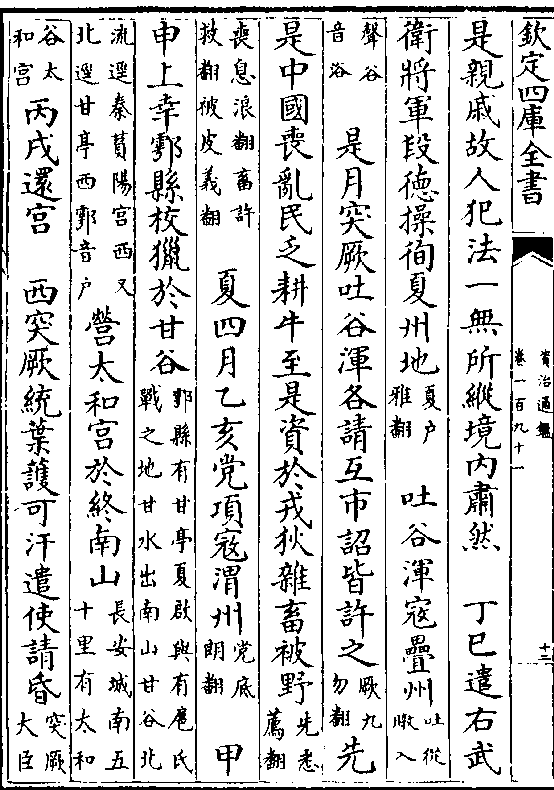 欽定四庫全書
資治通鑑
卷一百九十一
十三
是親戚故人犯法一無所縱境内肅然 丁巳遣右武
衛將軍段徳操徇夏州地夏户雅翻 吐谷渾寇疊州吐從暾入
聲谷音浴 是月突厥吐谷渾各請互市詔皆許之厥九勿翻先
是中國喪亂民乏耕牛至是資於戎狄雜畜被野先悉薦翻
喪息浪翻畜許救翻被皮義翻 夏四月乙亥党項寇渭州党底朗翻 甲
申上幸鄠縣校獵於甘谷鄠縣有甘亭夏啟與有扈氏戰之地甘水出南山甘谷北
流逕秦萯陽宫西又北逕甘亭西鄠音户 營太和宫於終南山長安城南五十里有太和
谷太和宫 丙戌還宫 西突厥統葉護可汗遣使請昏突厥大臣